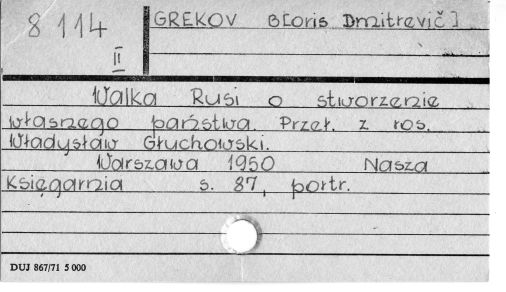 8 114
II
GREKOV B[oris Dmitrevič]
Walka Rusi o stworzenie
własnego państwa. Przeł. z ros.
Władysław Głuchowski.
Warszawa 1950 Nasza
Księgarnia s. 87, portr.
DUJ 867/71 5 000